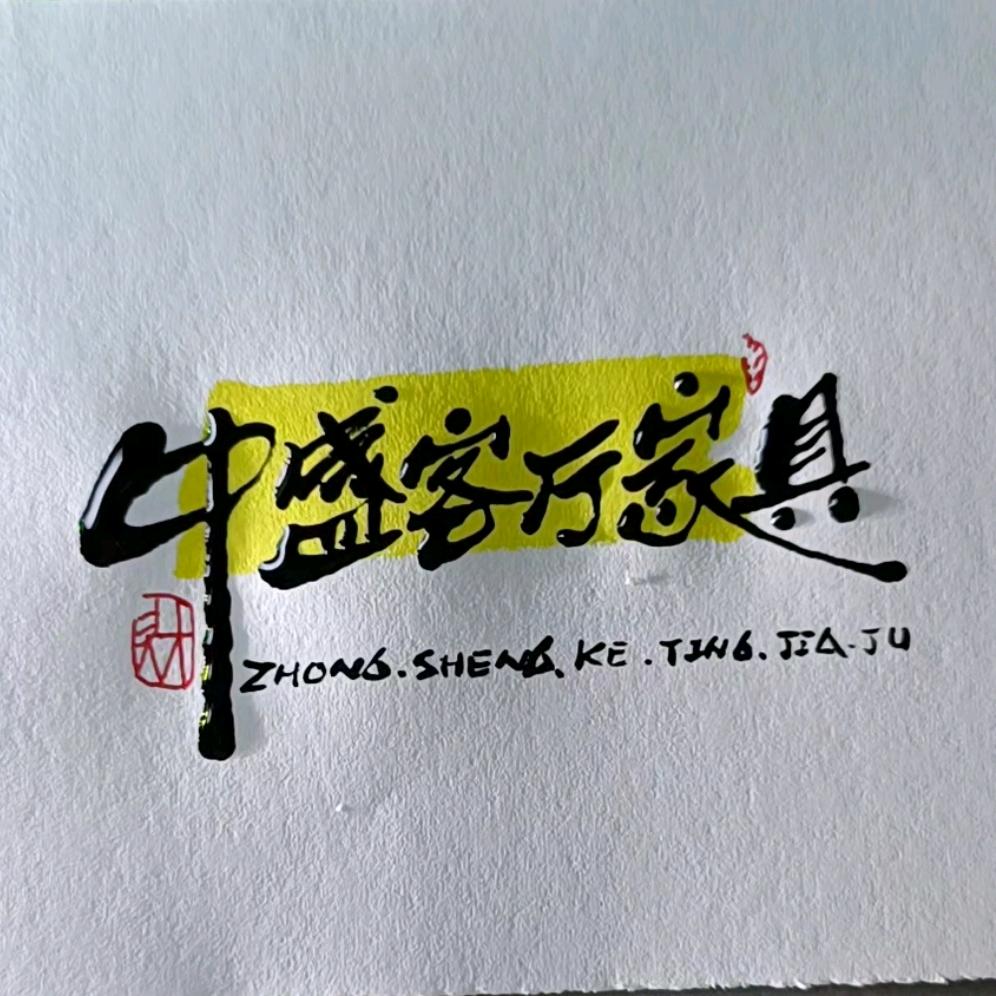 中盛客厅家具
ZHONG.SHENG.KE.TING.JIA.JU